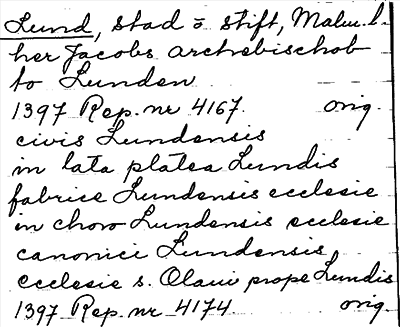 Lund, stad o stift, Malm. l.
her Jacobs archebischob
to Lunden
1397 Rep. nr 4167. orig.
civis Lundensis
in lata platea Lundis
fabrice Lundensis ecclesie
in choro Lundensis ecclesie
canonici Lundensis
ecclesie s. Olaui prope Lundis
1397 Rep. nr 4174. orig.